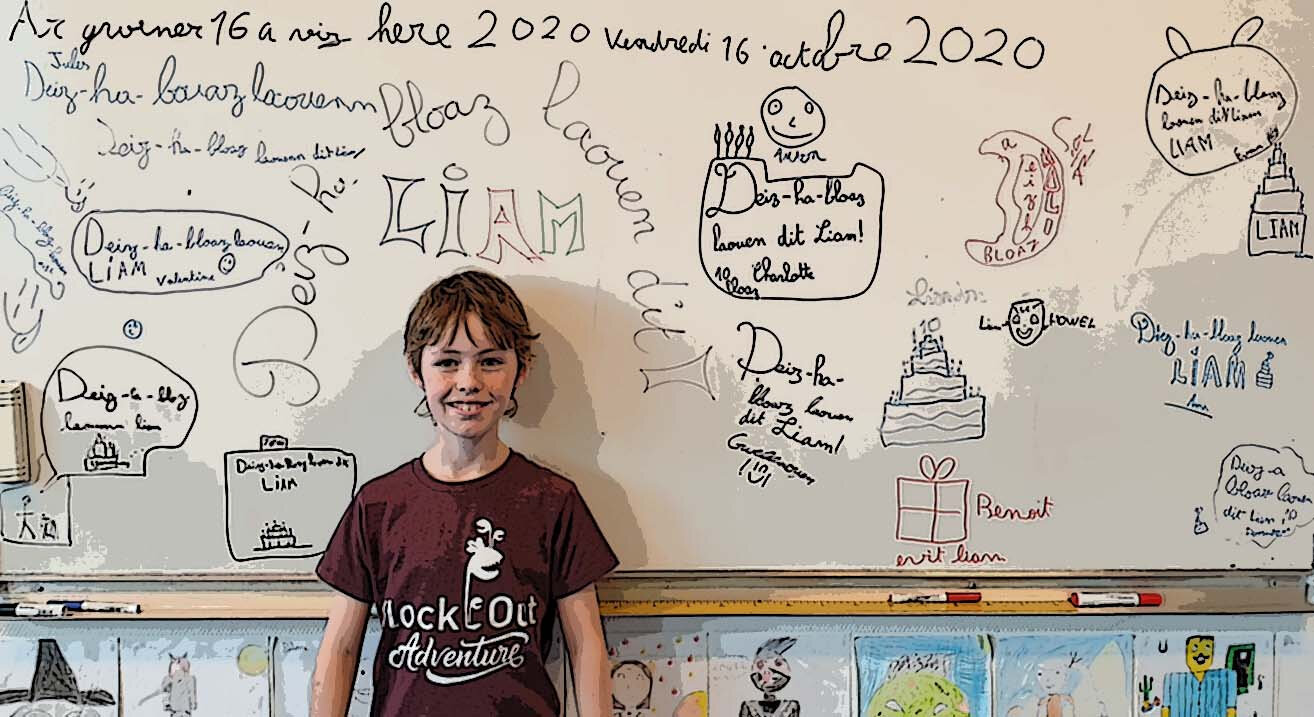 Ar gwener 16 a viz here 2020 Vendredi 16 octobre 2020
Jules
Deiz-ha-bloaz laouenn
Deiz-ha-bloaz laouenn dit Liam
Deiz-ha-
bloaz laouen dit
LIAM
Deiz-ha-bloaz laouen
LIAM
Valentine
Iwen
Deiz-ha-bloaz
laouen dit Liam!
10 Charlotte
bloaz
Deiz-ha-bloaz
laouen dit Liam
LIAM
Ewan
LIAM
BLOAZ
10
Liam
HOWEL
Deiz-ha-bloaz laouen
LIAM
Deiz-ha-
bloaz laouen
dit Liam!
Deiz-a-bloz
liam
Deiz-ha-bloaz laouen dit
LIAM
Benoit
evit liam
Deiz-a
bloaz laouen
dit Liam
BLOCK OUT
Adventure